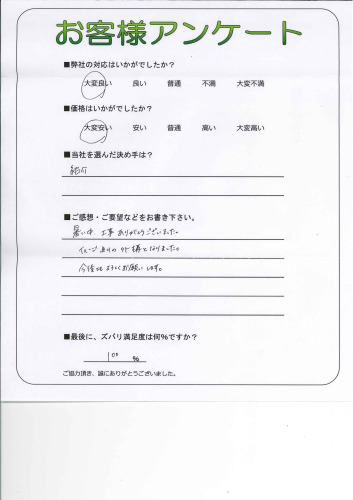 お客様アンケート
■弊社の対応はいかがでしたか？
大変良い 良い 普通 不満 大変不満
■価格はいかがでしたか？
大変安い 安い 普通 高い 大変高い
■当社を選んだ決め手は？
紹介
■ご感想・ご要望などをお書き下さい。
暑い中、工事ありがとうございました。
イメージ通りの外構となりました。
今後ともよろしくお願いします。
■最後に、ズバリ満足度は何％ですか？
100 ％
ご協力頂き、誠にありがとうございました。